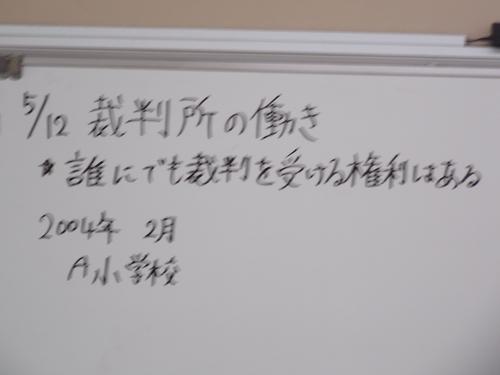 5/12 裁判所の働き
* 誰にでも裁判を受ける権利はある
2004年 2月
A小学校